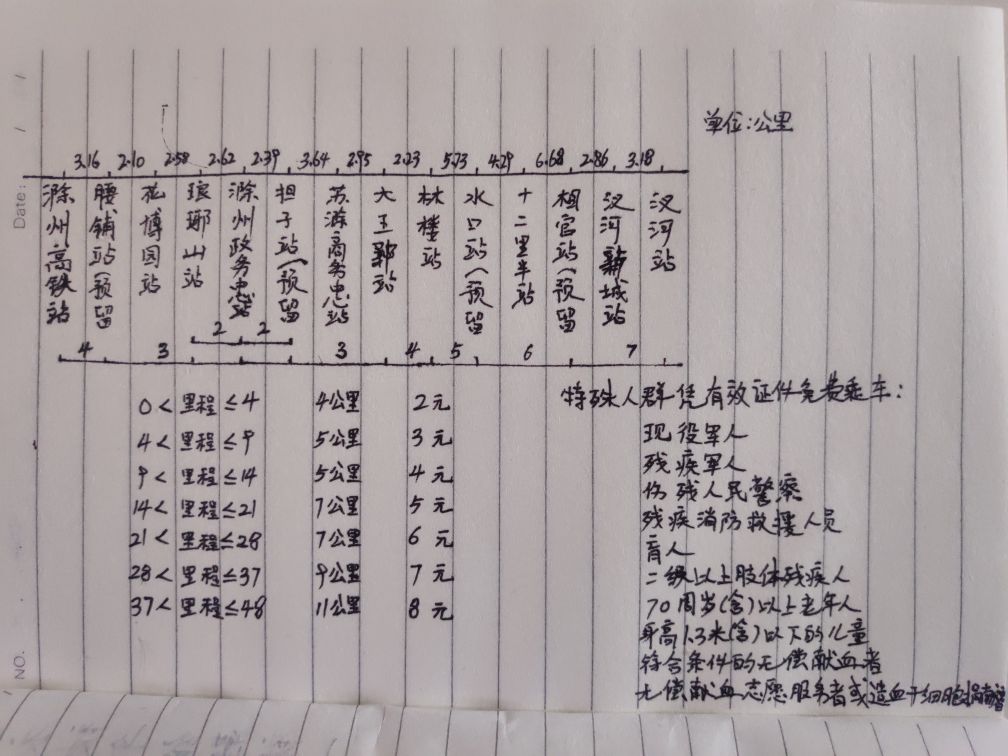 Date: / /
单位:公里
3.16 2.10 2.58 2.62 2.39 3.64 2.95 2.23 5.73 4.29 6.68 2.86 3.18
滁州高铁站
腰铺站(预留
花博园站
琅琊山站
滁州政务中心站
担子站(预留
苏滁商务中心站
大王郢站
林楼站
水口站(预留
十二里半站
相官站(预留
汊河新城站
汊河站
2 2
4 3 3 4 5 6 7
0 < 里程 ≤ 4 4公里 2元
4 < 里程 ≤ 9 5公里 3元
9 < 里程 ≤ 14 5公里 4元
14 < 里程 ≤ 21 7公里 5元
21 < 里程 ≤ 28 7公里 6元
28 < 里程 ≤ 37 9公里 7元
37 < 里程 ≤ 48 11公里 8元
特殊人群凭有效证件免费乘车:
现役军人
残疾军人
伤残人民警察
残疾消防救援人员
盲人
二级以上肢体残疾人
70周岁(含)以上老年人
身高1.3米(含)以下的儿童
符合条件的无偿献血者
无偿献血志愿服务者或造血干细胞捐献者
NO.